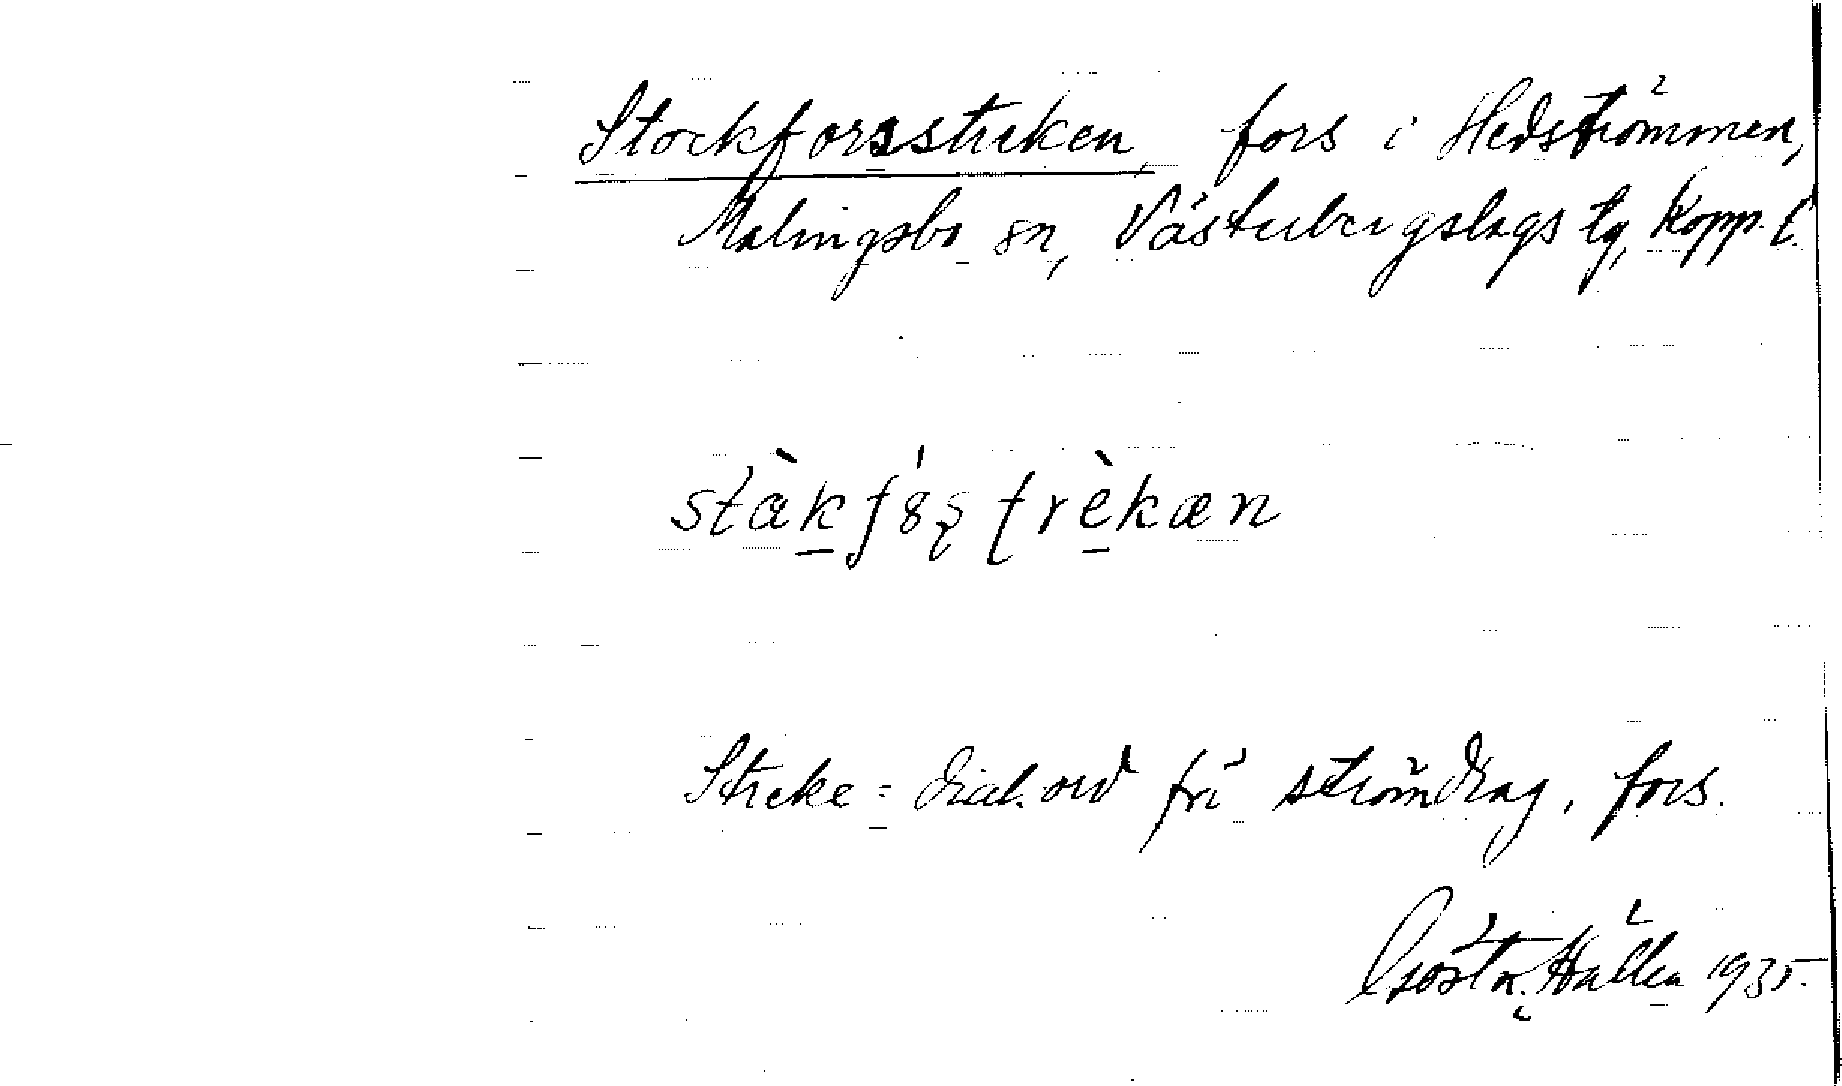 Stockforsstreken, fors i Hedströmmen,
Malingsbo sn, Västerbergslags tg, Kopp. l.
stàkfȣ́ʂtrèkæn
Streke = dial. ord för strömdrag, fors.
Gösta Hallén 1935.